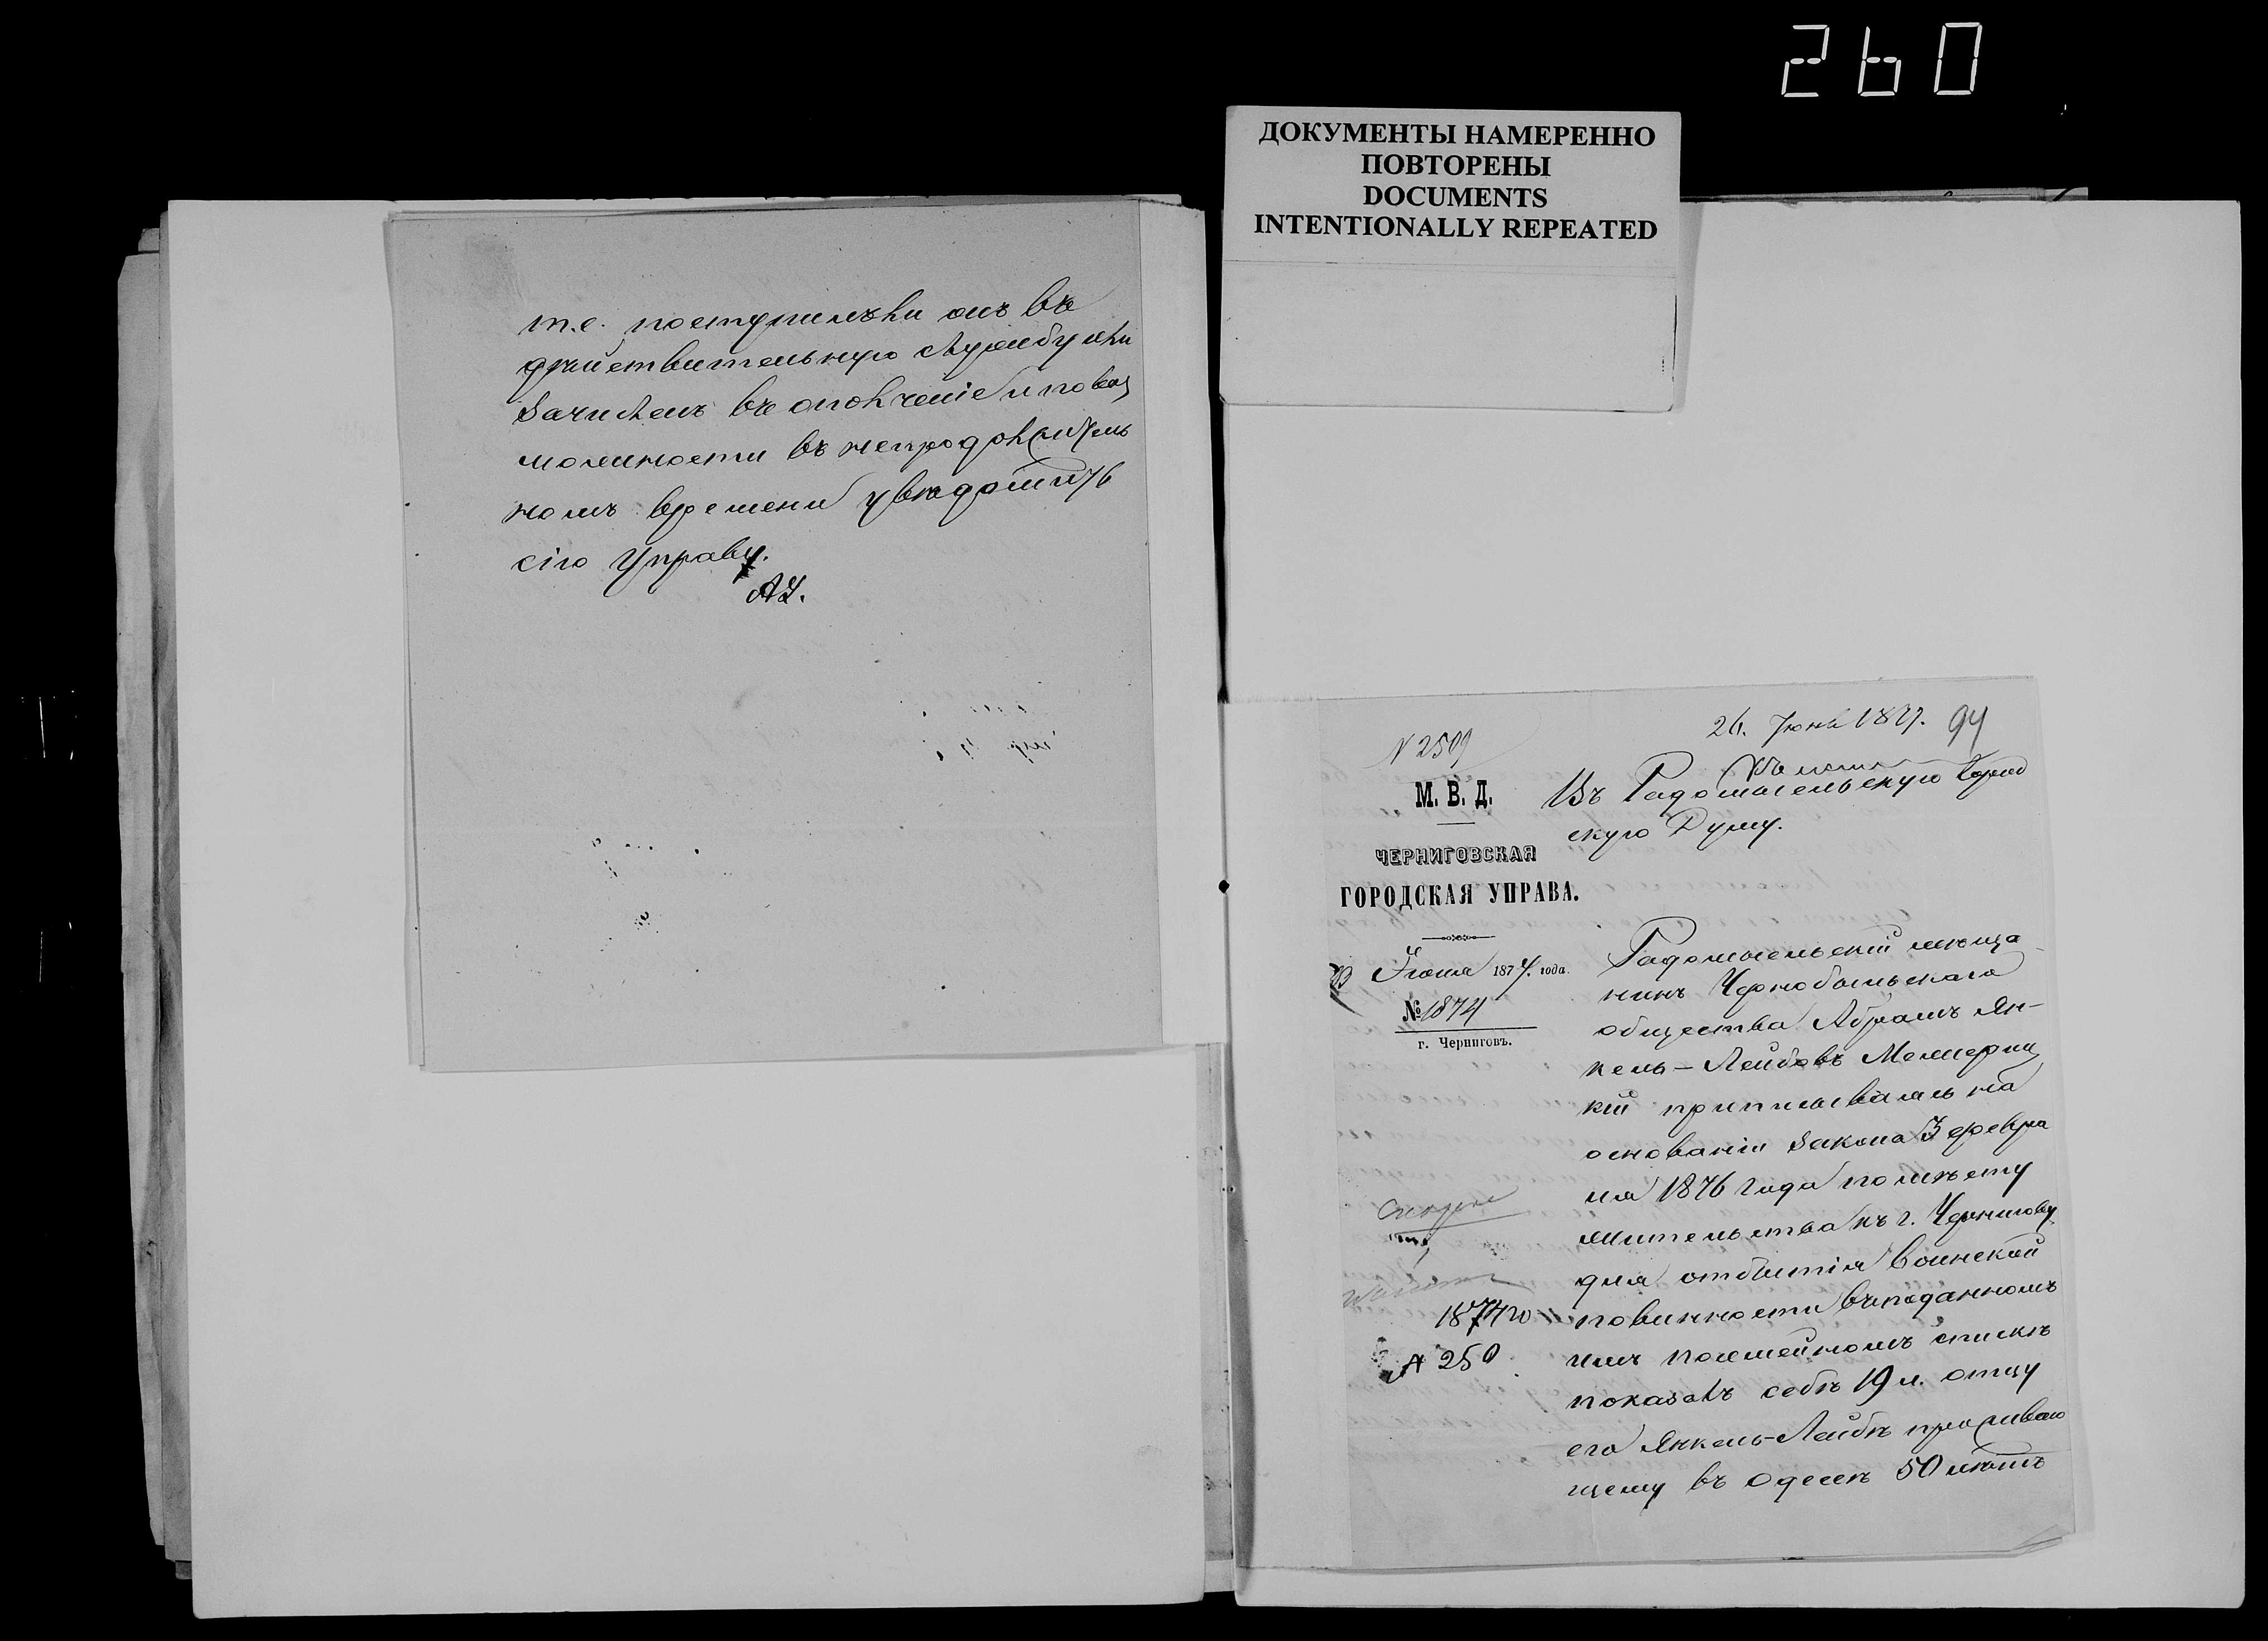 260
ДОКУМЕНТЫ НАМЕРЕННО
ПОВТОРЕНЫ
DOCUMENTS
INTENTIONALLY REPEATED
т.е. поступилъ ли онъ въ
дѣйствительную службу или
зачисленъ въ ополченіе и по воз
можности въ непродолжитель
номъ времени увѣдомить
сію Управу.
26. Іюня 1877. 94
N 2509
М. В. Д.
Въ Радомысельскую Город
скую Думу.
ЧЕРНИГОВСКАЯ
ГОРОДСКАЯ УПРАВА.
Іюня 1877. года.
№ 1874
г. Черниговъ.
Радомысельскій мѣща
нинъ Чернобыльскаго
общества Абрамъ Ян-
кель-Лейбовъ Межериц
кій приписываясь на
основаніи закона 3 февра
ля 1876 года по мѣсту
жительства къ г. Чернигову
для отбытія воинской
повинности въ поданномъ
имъ посемейномъ спискѣ
показалъ себѣ 19 л. отцу
его Янкель-Лейбѣ прожива
щему въ Одессѣ 50 лѣтъ
1874
250